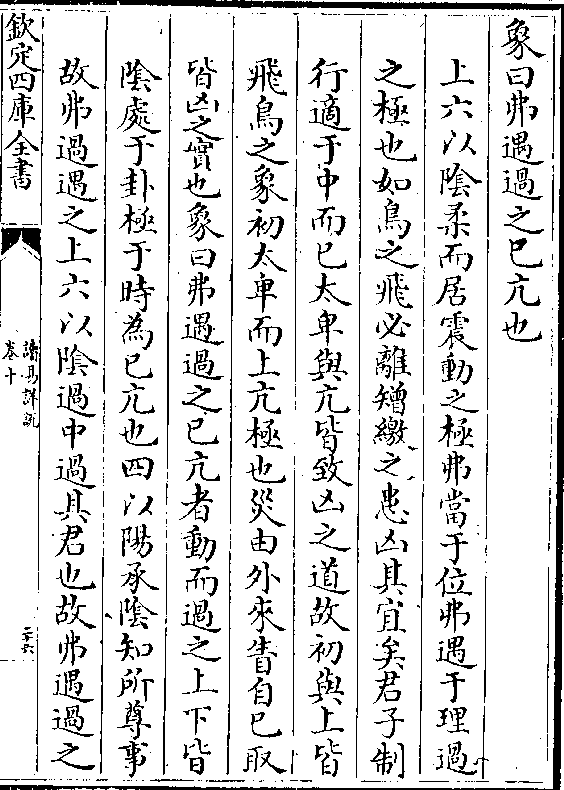 象曰弗遇過之已亢也
上六以陰柔而居震動之極弗當于位弗遇于理過
之極也如鳥之飛必離矰繳之患凶其宜矣君子制
行適于中而已太卑與亢皆致凶之道故初與上皆
飛鳥之象初太卑而上亢極也災由外來眚自已取
皆凶之實也象曰弗遇過之已亢者動而過之上下皆
陰處于卦極于時為已亢也四以陽承陰知所尊事
故弗過遇之上六以陰過中過其君也故弗遇過之
欽定四庫全書
讀易詳說
卷十
二十六